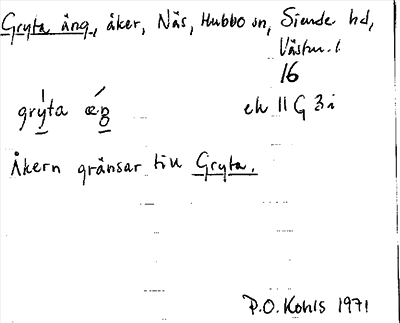 Gryta äng, åker, Näs, Hubbo sn, Siende hd,
Västm. l
16
gryta æŋ
ek 11 G 3 i
Åkern gränsar till Gryta.
P.O. Kohls 1971